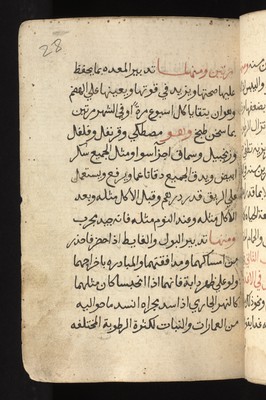 28
مرتين ومنها تدبير المعده بما يحفظ
عليها صحتها ويزيد في قوتها ويعينها على الهضم
وهو ان يتقايا كل اسبوع مرة او في الشهر مرتين
بما سخن طبخ مصطكي وقرنفل وفلفل
وزنجبيل وسماق اجزا سوا ومثل الجميع سكر
ابيض ويدق الجميع دقا ناعما ويرفع ويستعمل
على الريق قدر درهم وقبل الاكل مثله وبعد
الاكل مثله وعند النوم مثله فانه جيد مجرب
ومنها تدبير البول والغايط اذا حضر فاحذر
من امساكهما ومدافعتهما والمبادره باخراجهما
ولو على ظهر دابة فانهما اذا انحبسا كان مثلهما
كالنهر الجاري اذا سد مجراه افسد ما حواليه
من العمارات والنبات لكثرة الرطوبة المختلفه